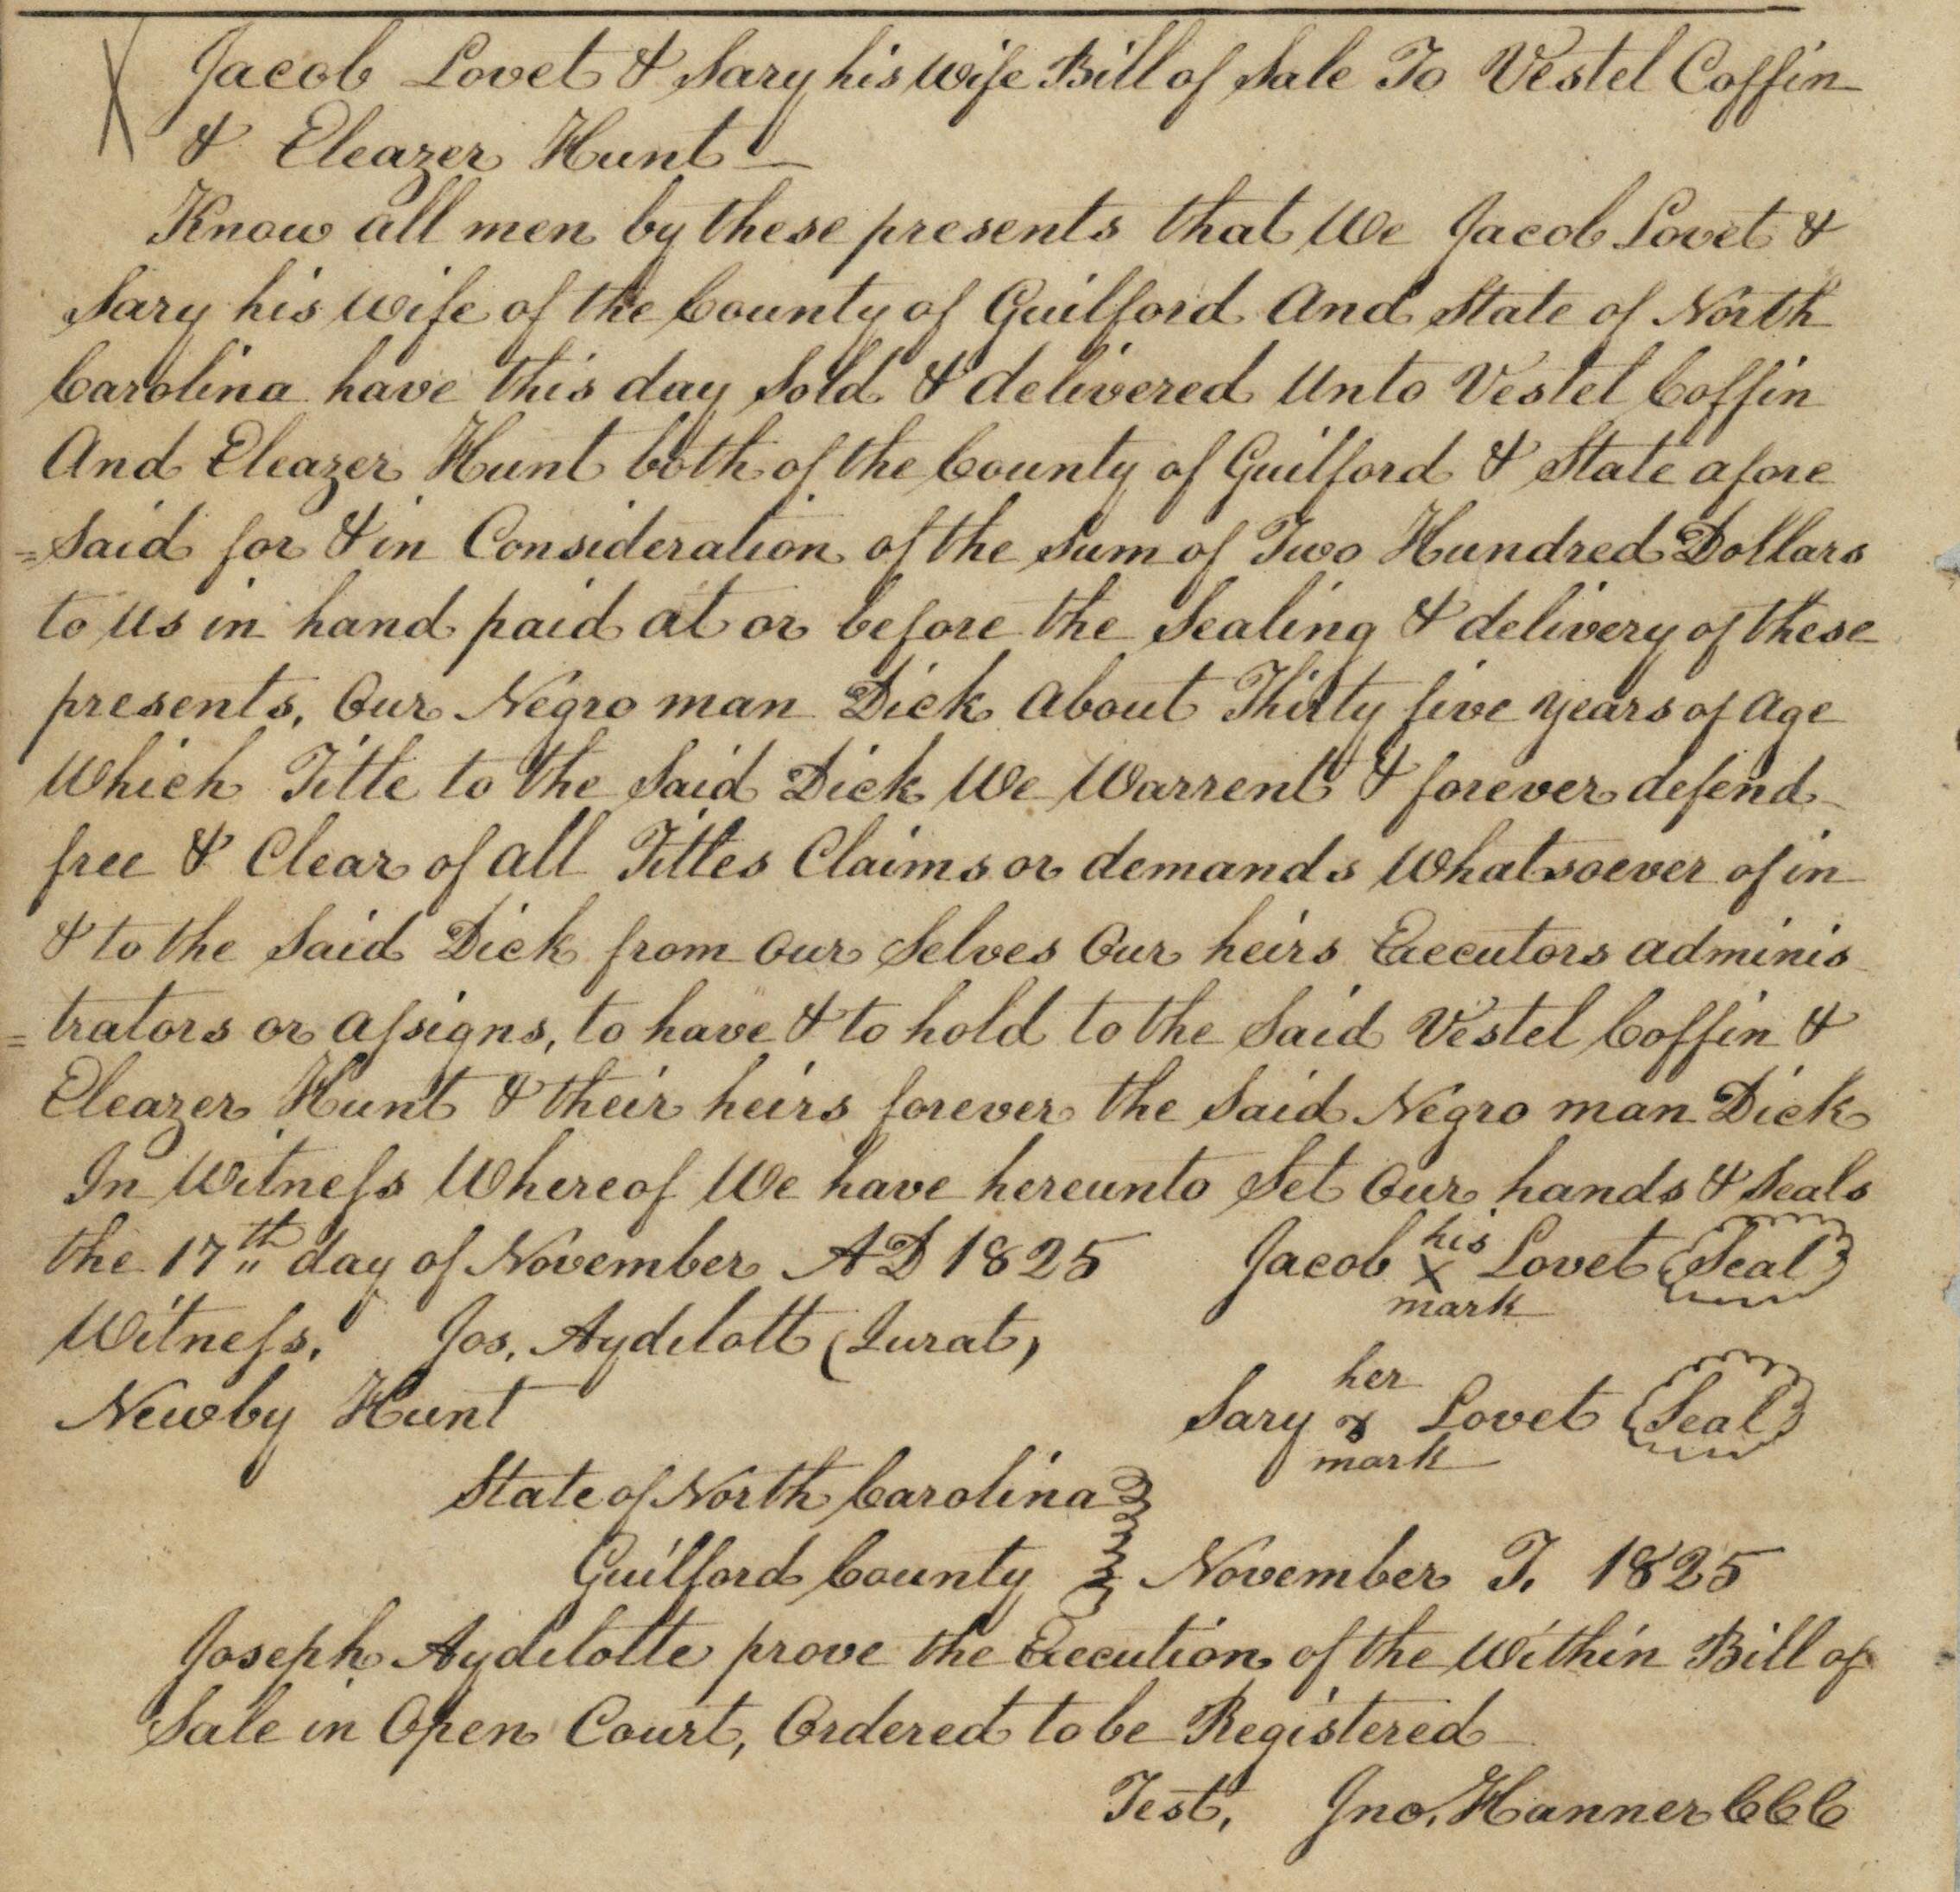 Jacob Lovet & Sary his wife Bill of Sale To Vestel Coffin
& Eleazer Hunt
Know all men by these presents that We Jacob Lovet &
Sary his wife of the County of Guilford And State of North
Carolina have this day Sold & delivered Unto Vestel Coffin
And Eleazer Hunt both of the County of Guilford & State afore
=Said for & in Consideration of the Sum of Two Hundred Dollars
to us in hand paid at or before the Sealing & delivery of these
presents, Our Negro man Dick About Thirty five years of Age
Which Title to the Said Dick We Warrent & forever defend
free & Clear of all Titles Claims or demands Whatsoever of in
& to the Said Dick from Our Selves Our heirs Executors adminis
=trators or assigns, to have & to hold to the Said Vestel Coffin &
Eleazer Hunt & their heirs forever the Said Negro man Dick
In Witness Whereof We have hereunto Set Our hands & Seals
the 17th day of November AD 1825 Jacob his X mark Lovet Seal
Witness, Jos, Aydelott (Jurat,
Newby Hunt Sary her x mark Lovet Seal
State of North Carolina
Guilford County November T. 1825
Joseph Aydelotte prove the Execution of the Within Bill of
Sale in Open Court, Ordered to be Registered
Test, Jno, Hanner CCC